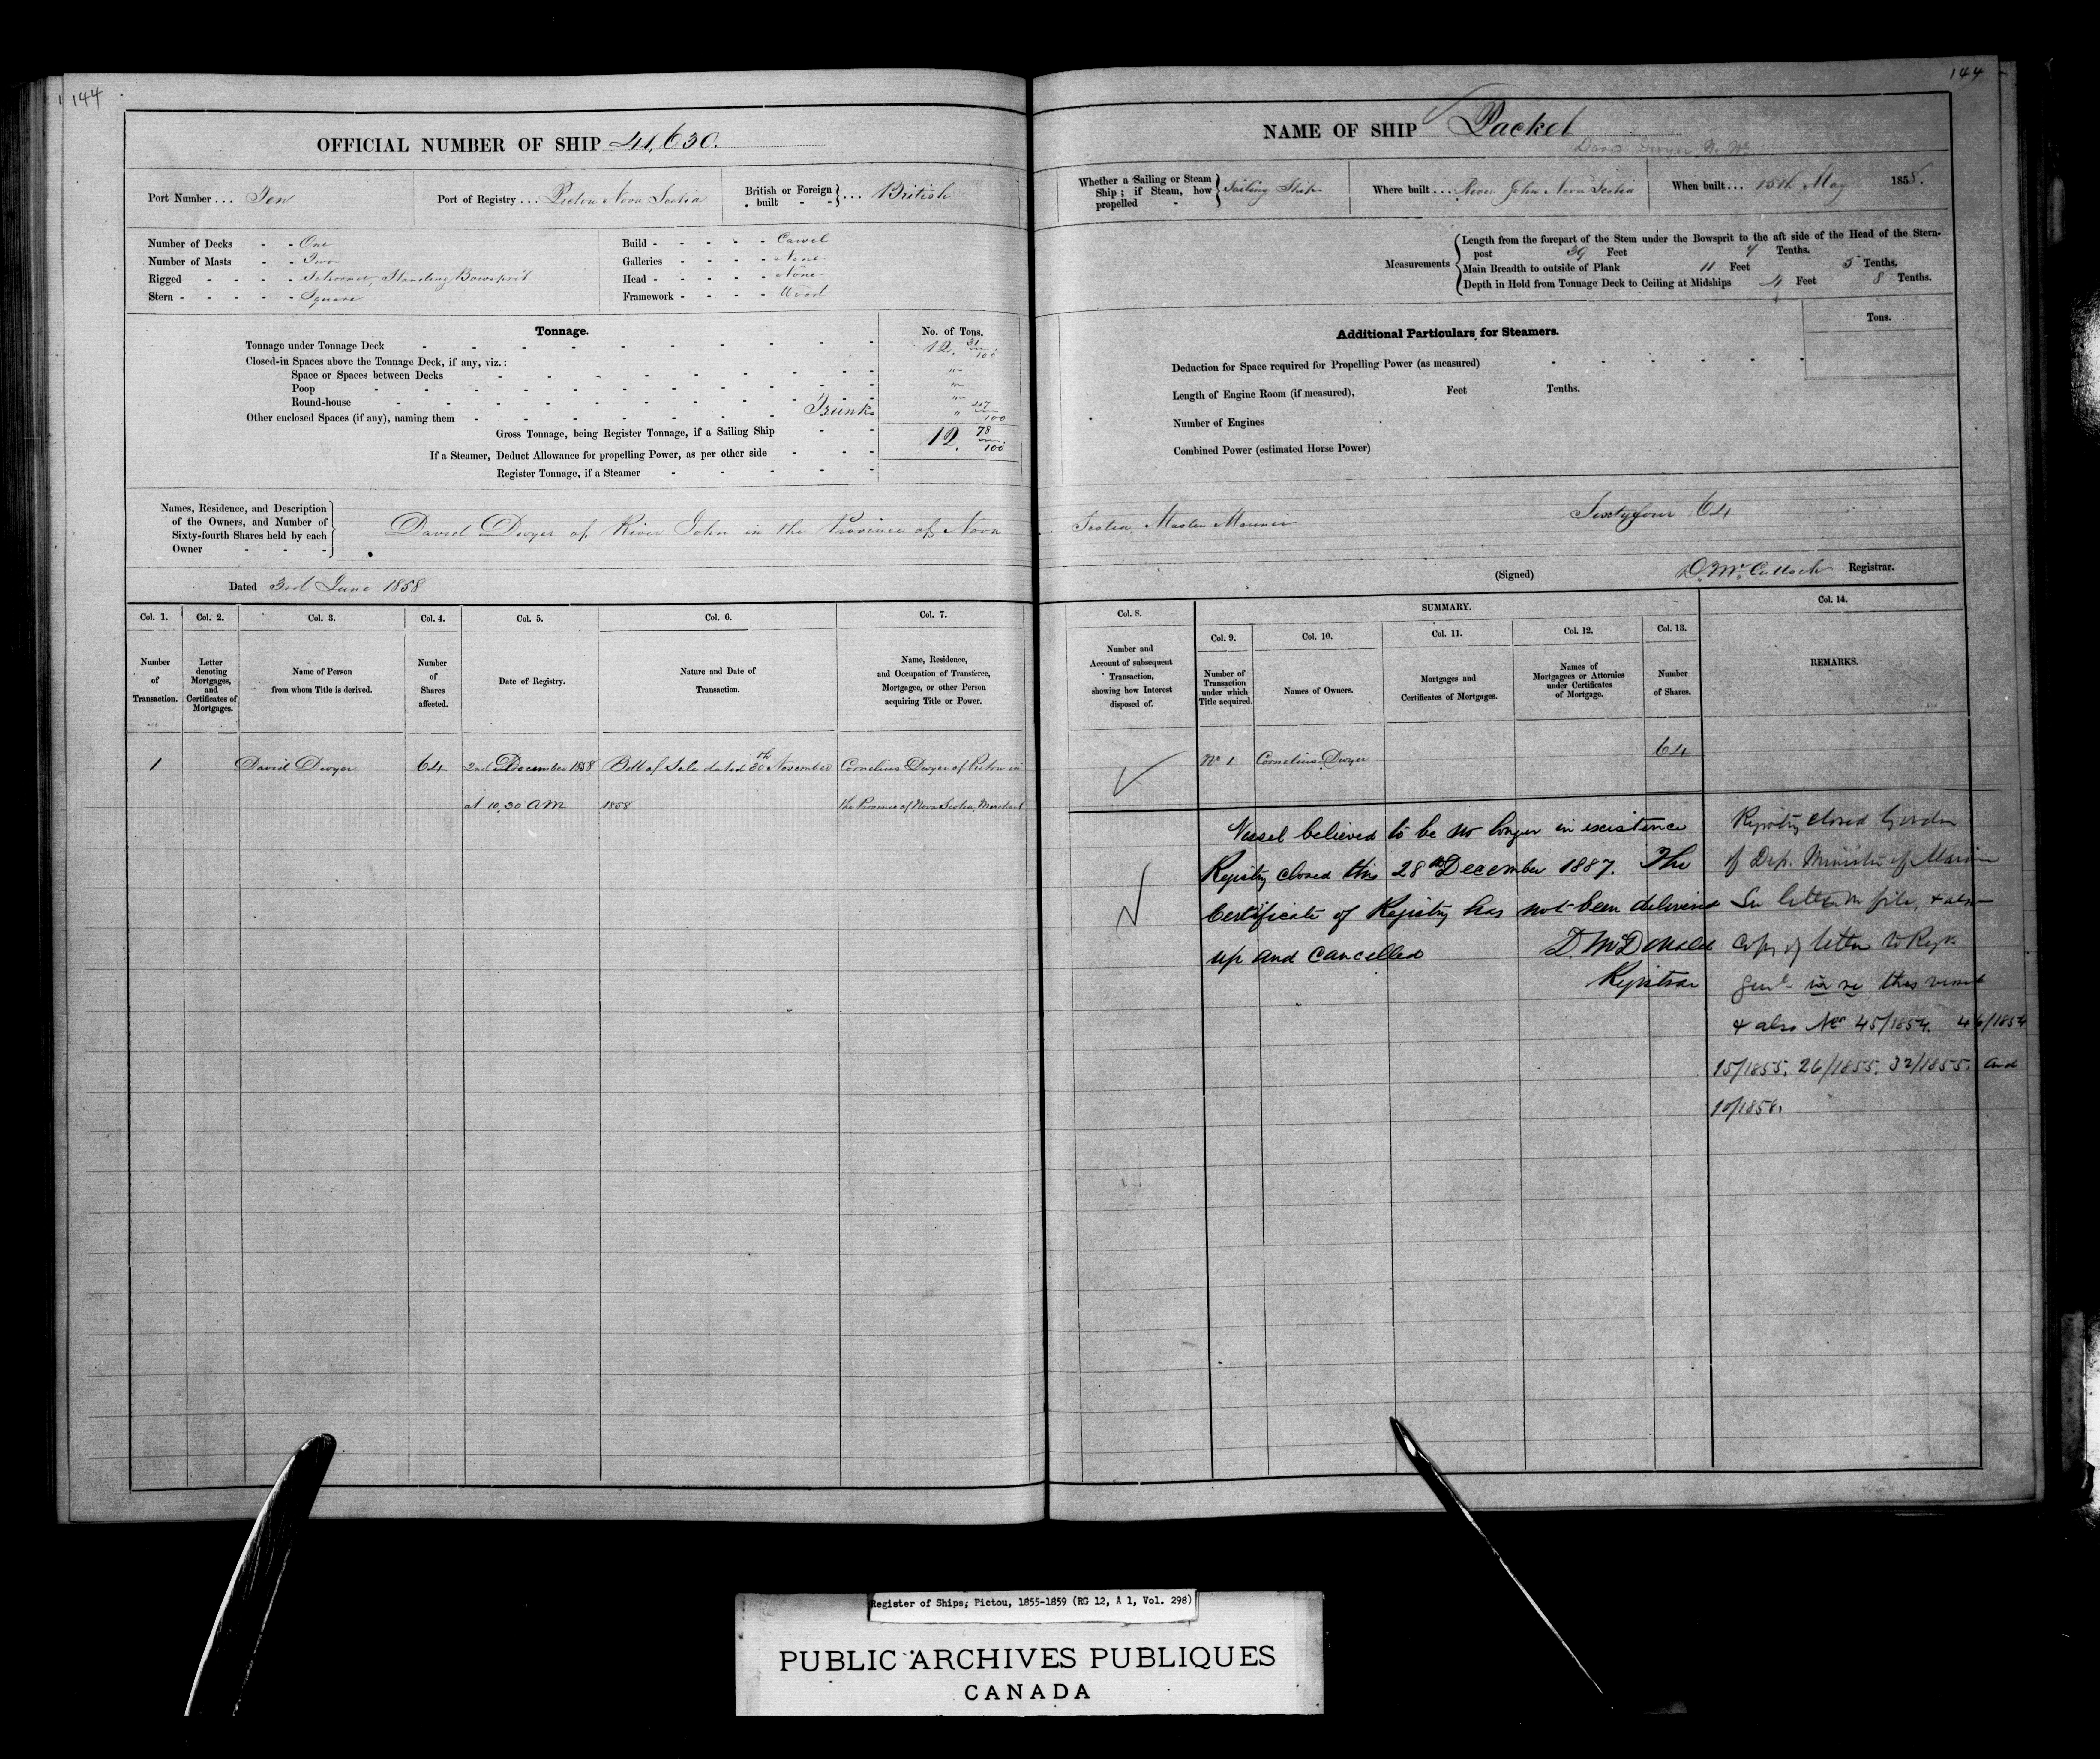 144
OFFICIAL NUMBER OF SHIP 41,630.
Port Number ... Ten
Port of Registry ... Pictou Nova Scotia
British or Foreign built - - } ... British
Number of Decks - - One
Number of Masts - - Two
Rigged - - - - - Schooner, Standing Bowsprit
Stern - - - - - Square
Build - - - - - Carvel
Galleries - - - - - None
Head - - - - - None
Framework - - - - Wood
Tonnage.
No. of Tons.
Tonnage under Tonnage Deck 12. 31/100
Closed-in Spaces above the Tonnage Deck, if any, viz.:
Space or Spaces between Decks "
Poop "
Round-house "
Other enclosed Spaces (if any), naming them Trunk " 47/100
Gross Tonnage, being Register Tonnage, if a Sailing Ship 12. 78/100
If a Steamer, Deduct Allowance for propelling Power, as per other side
Register Tonnage, if a Steamer
Names, Residence, and Description
of the Owners, and Number of
Sixty-fourth Shares held by each
Owner - - -
David Dwyer of River John in the Province of Nova
Dated 3rd June 1858
Col. 1. Col. 2. Col. 3. Col. 4. Col. 5. Col. 6. Col. 7.
Number of Transaction.
Letter denoting Mortgages, and Certificates of Mortgages.
Name of Person from whom Title is derived.
Number of Shares affected.
Date of Registry.
Nature and Date of Transaction.
Name, Residence, and Occupation of Transferee, Mortgagee, or other Person acquiring Title or Power.
1 David Dwyer 64 2nd December 1858 Bill of Sale dated 30th November Cornelius Dwyer of Pictou in
at 10,30 AM 1858 the Province of Nova Scotia, Merchant
144
NAME OF SHIP Packet
David Dwyer
Whether a Sailing or Steam Ship; if Steam, how propelled - } Sailing Ship
Where built ... River John Nova Scotia
When built ... 15th May 1858.
Measurements
Length from the forepart of the Stem under the Bowsprit to the aft side of the Head of the Stern-
post 39 Feet 7 Tenths.
Main Breadth to outside of Plank 11 Feet 5 Tenths.
Depth in Hold from Tonnage Deck to Ceiling at Midships 4 Feet 8 Tenths.
Additional Particulars for Steamers.
Tons.
Deduction for Space required for Propelling Power (as measured)
Length of Engine Room (if measured), Feet Tenths.
Number of Engines
Combined Power (estimated Horse Power)
Scotia, Master Mariner Sixtyfour 64
(Signed) D. McCulloch Registrar.
Col. 8.
SUMMARY.
Col. 14.
Col. 9. Col. 10. Col. 11. Col. 12. Col. 13.
Number and Account of subsequent Transaction, showing how Interest disposed of.
Number of Transaction under which Title acquired.
Names of Owners.
Mortgages and Certificates of Mortgages.
Names of Mortgagees or Attornies under Certificates of Mortgage.
Number of Shares.
REMARKS.
No 1 Cornelius Dwyer 64
Vessel believed to be no longer in existence
Registry closed this 28th December 1887. The
Certificate of Registry has not been delivered
up and cancelled D. McDonald
Registrar
Registry closed by order
of Dep. Minister of Marine
See letter on file, & also
Copy of letter to Regr
Genl in re this vessel
& also Nos 45/1854. 46/1854
15/1855. 26/1855. 32/1855. and
10/1856.
Register of Ships, Pictou, 1855-1859 (RG 12, A 1, Vol. 298)
PUBLIC ARCHIVES PUBLIQUES
CANADA